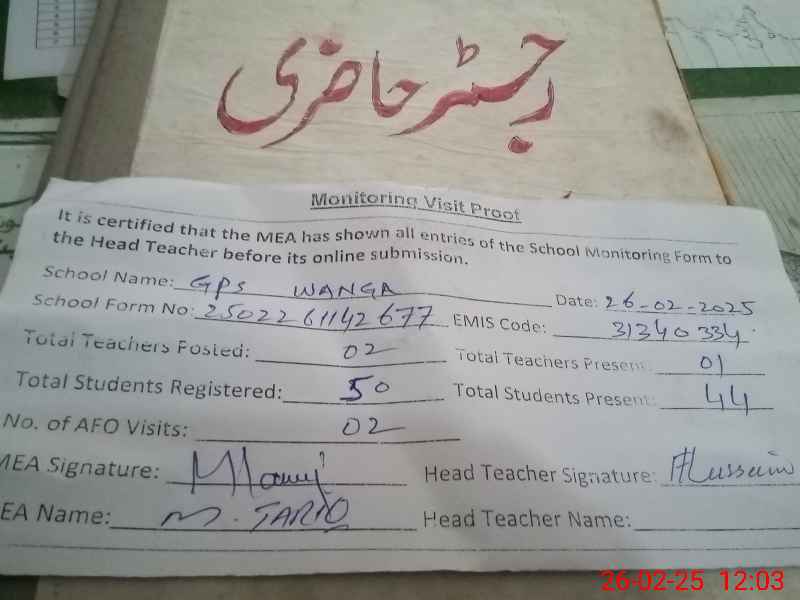 رجسٹر حاضری
Monitoring Visit Proof
It is certified that the MEA has shown all entries of the School Monitoring Form to
the Head Teacher before its online submission.
School Name: GPS WANGA Date: 26-02-2025
School Form No: 2502261142677 EMIS Code: 31340334
Total Teachers Posted: 02 Total Teachers Present: 01
Total Students Registered: 50 Total Students Present: 44
No. of AFO Visits: 02
MEA Signature: Head Teacher Signature: AHussain
EA Name: M. TARIQ Head Teacher Name:
26-02-25 12:03